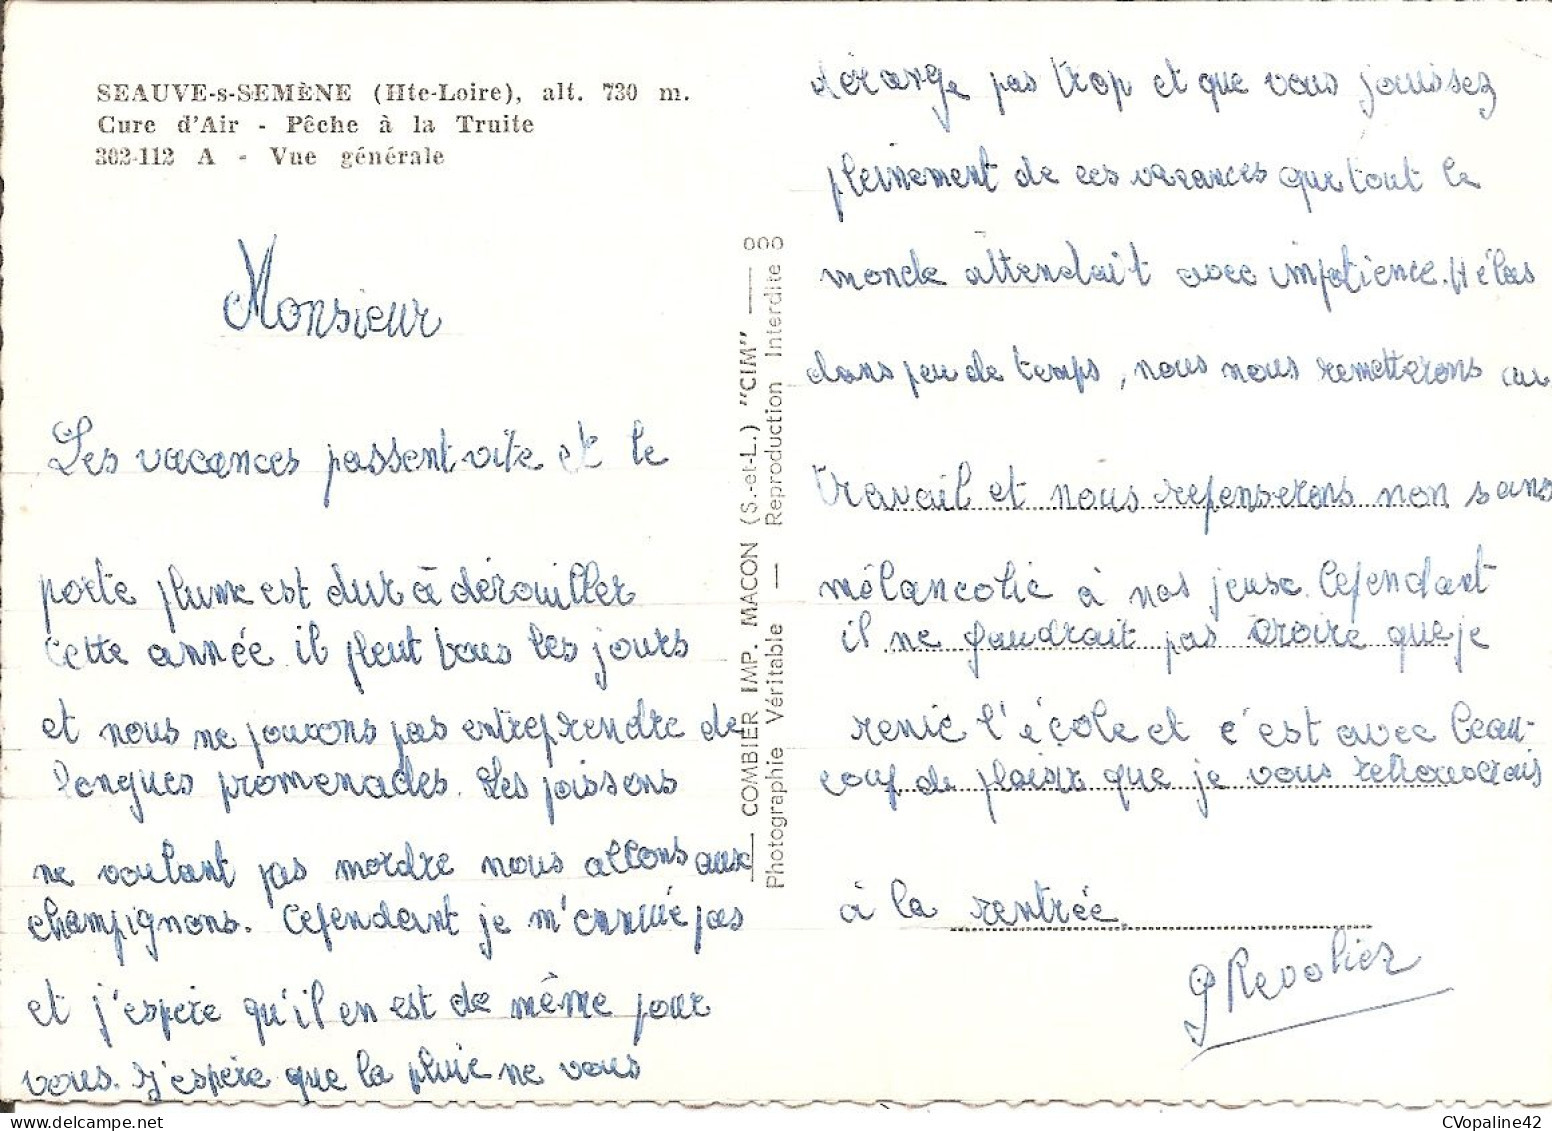 SEAUVE-s-SEMÈNE (Hte-Loire), alt. 730 m.
Cure d'Air - Pêche à la Truite
302-112 A - Vue générale
Monsieur
Les vacances passent vite et le
porte plume est dur à dérouiller
cette année il pleut tous les jours
et nous ne pouvons pas entreprendre de
longues promenades. Les poissons
ne voulant pas mordre nous allons aux
champignons. Cependant je m'ennuie pas
et j'espère qu'il en est de même pour
vous. J'espère que la pluie ne vous
COMBIER IMP. MACON (S.-et-L.) "CIM"
Photographie Véritable — Reproduction Interdite
dérange pas trop et que vous jouissez
pleinement de ces vacances que tout le
monde attendait avec impatience. Hélas
dans peu de temps, nous nous remetterons au
travail et nous repenserons non sans
mélancolie à nos jeux. Cependant
il ne faudrait pas croire que je
renie l'école et c'est avec beau-
coup de plaisir que je vous retrouverais
à la rentrée.
G Revolier
www.delcampe.net
CVopaline42